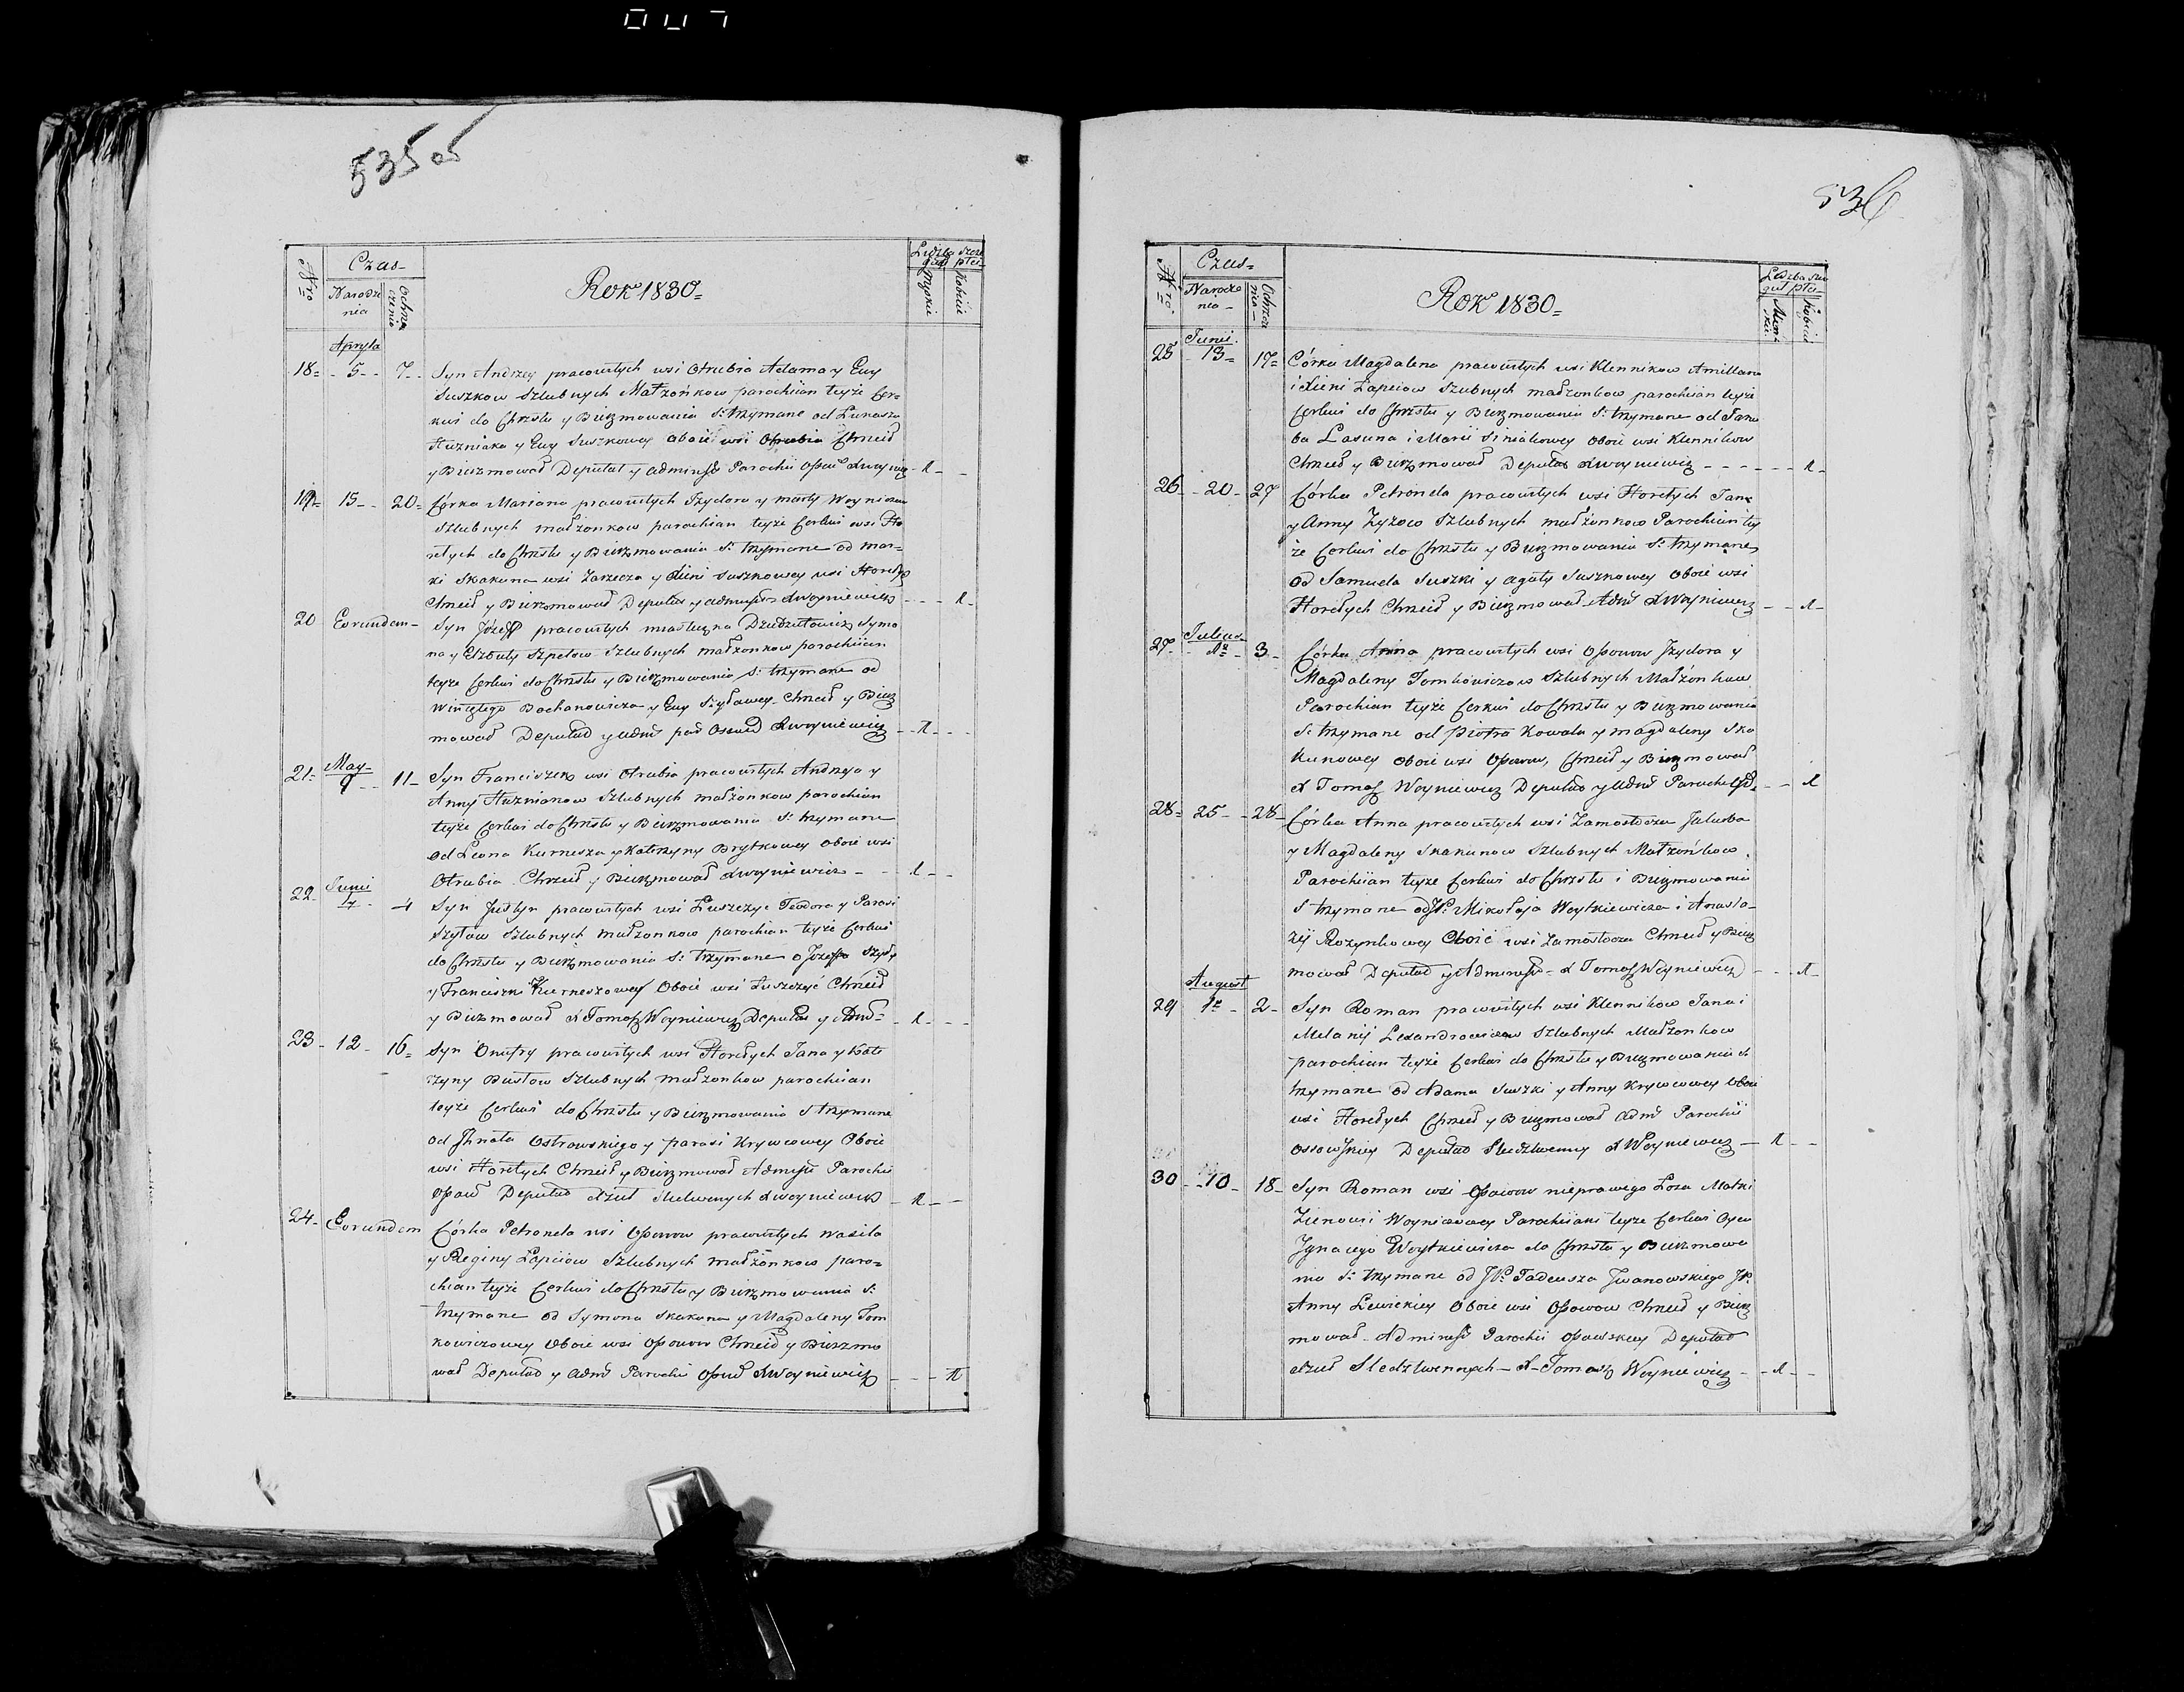 535 об
Nro
Czas
Narodze
nia
Ochrze
czenia
Rok 1830
Męskie
Kobiie
Apryla
18 5 7 Syn Andrzey pracowitych wsi Otrubia Adama y Ewy
Suszkow Szlubnych Małżonkow parochiian teyże Cer=
kwi do Chrztu y Bierzmowania S. trzymane od Lukasza
Huzniaka y Ewy Suszkowey oboie wsi Otrubia Chrzcił
y Bierzmował Deputat y Administr Parochii Osow X Woyniewicz 1
19 15 20 Córka Marianna pracowitych Izydora y Marty Woyniczow
Szlubnych małżonkow parochian teyże Cerkwi wsi Ho
rełych do Chrztu y Bierzmowania S. trzymane od Mar=
ki Skakuna wsi Zarzecza y Xieni Suszkowey wsi Horełych
Chrzcił y Bierzmował Deputat y Administr X Woyniewicz 1
20 Eorundem Syn Józeff pracowitych miasteczka Dziedziłowicz Symo
na y Elżbiety Szpetow Szlubnych małżonkow parochiian
teyże Cerkwi do Chrztu y Bierzmowania S. trzymane od
Wincętego Bochanowicza y Ewy Szyławey Chrzcił y Bierz
mował Deputad y Admi par Ossow X Woyniewicz 1
May
21 9 11 Syn Franciszek wsi Otrubia pracowitych Andrzeja y
Anny Huznianow Szlubnych małżonkow parochian
teyże Cerkwi do Chrztu y Bierzmowania S. trzymane
od Leona Kurnesza y Katerzyny Brytkowey oboie wsi
Otrubia Chrzcił y Bierzmował X Woyniewicz 1
Junii
22 4 Syn Justyn pracowitych wsi Łuszczyc Teodora y Parasi
Szyłow Szlubnych małżonkow parochian teyże Cerkwi
do Chrztu y Bierzmowania S. trzymane o Jozeffa Szyły
y Franciszki Kurneszowey Oboie wsi Łuszczyc Chrzcił
y Bierzmował X Tomasz Woyniewicz Deputat y Adm 1
23 12 16 Syn Onufry pracowitych wsi Horełych Jana y Kate
rzyny Bustow Szlubnych małżonkow parochian
teyże Cerkwi do Chrztu y Bierzmowania S trzymane
od Ihnata Ostrowskiego y Parasi Krywcowey Oboie
wsi Horełych Chrzcił y Bierzmował Adminstr Parochii
Osow Deputad X Woyniewicz 1
24 Eorundem Córka Petronela wsi Osowow pracowitych Wasila
y Reginy Łapciow Szlubnych małżonkow paro=
chian teyże Cerkwi do Chrztu y Bierzmowania S.
trzymane od Symona Skakuna y Magdaleny Tom
kowiczowey Oboie wsi Osowow Chrzcił y Bierzmo
wał Deputad y Adm Parochii Osow X Woyniewicz 1
536
Nro
Czas
Narodze
nia
Ochrzcze
nia
Rok 1830
Kobiie
Junii
25 13 17 Córka Magdalena pracowitych wsi Klennikow Amillana
i Xieni Łapciow Szlubnych małżonkow parochiian teyże
Cerkwi do Chrztu y Bierzmowania S. trzymane od Jaku
ba Lasuna i Marii Siniakowey Oboie wsi Klennikow
Chrzcił y Bierzmował Deputat X Woyniewicz 1
26 20 27 Córka Petronela pracowitych wsi Horełych Jana
y Anny Zyzow Szlubnych małżonkow Parochiian tey
że Cerkwi do Chrztu y Bierzmowania S. trzymane
od Samuela Suszki y Agaty Suszkowey Oboie wsi
Horełych Chrzcił y Bierzmował Adm X Woyniewicz 1
Julius
27 1 3 Córka Anna pracowitych wsi Osowow Izydora y
Magdaleny Tomkowiczow Szlubnych Małżonkow
Parochian teyże Cerkwi do Chrztu y Bierzmowania
S. trzymane od Piotra Kowala y Magdaleny Ska
kunowey Oboie wsi Osowow, Chrzcił y Bierzmował
X Tomasz Woyniewicz Deputad y Adm 1
28 25 28 Córka Anna pracowitych wsi Zamostocza Jakuba
y Magdaleny Skakunow Szlubnych Małżońkow
Parochiian teyże Cerkwi do Chrztu i Bierzmowania
S trzymane od JP. Mikołaja Woytkiewicza i Anasta=
zij Rozynkowey Oboie wsi Zamostocza Chrzcił y Bierz
mował Deputad y Administr X Tomasz Woyniewicz 1
August
29 1 2 Syn Roman pracowitych wsi Klennikow Jana i
Melanij Lexandrowiczow Szlubnych Małżonkow
parochian teyże Cerkwi do Chrztu y Bierzmowania S
trzymane od Adama Suszki y Anny Krywcowey Oboie
wsi Horełych Chrzcił y Bierzmował Adm Parochii
Ossowskiey Deputad Sledztwenny X Woyniewicz 1
30 10 18 Syn Roman wsi Osowow nieprawego Łoza Matki
Zienowii Woyniczowey Parochiianki teyże Cerkwi Oyca
Ignacego Woytkiewicza do Chrztu y Bierzmowa
nia S. trzymane od JP. Tadeusza Iwanowskiego JP.
Anny Lewickiey Oboie wsi Osowow Chrzcił y Bierz
mował Administr Parochii Osowskiey Deputad
Sledztwennych X Tomasz Woyniewicz 1